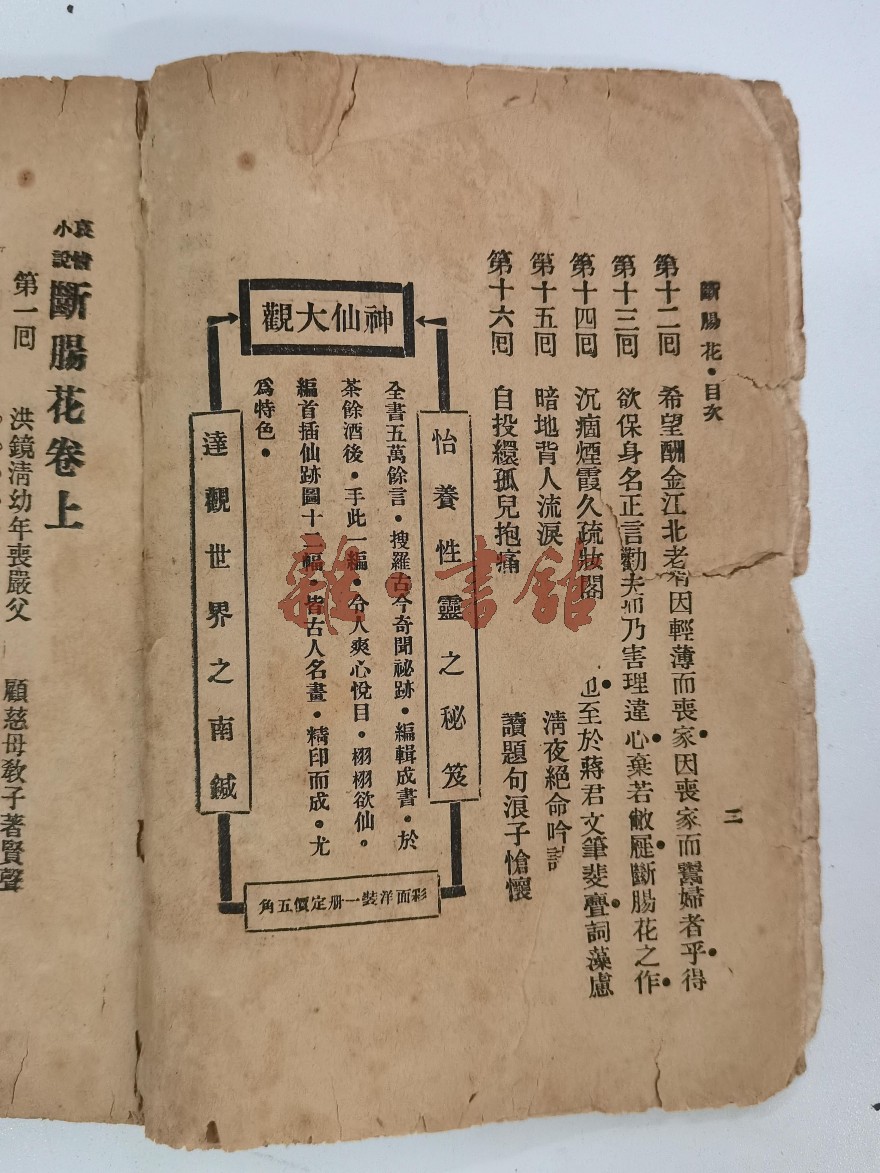 斷腸花・目次
三
第十二回 希望酬金江北老 因輕薄而喪家・因喪家而鬻婦者乎・得
第十三回 欲保身名正言勸夫 而乃害理違心・棄若敝屣・斷腸花之作・
第十四回 沉痼煙霞久疏妝閣 也・至於蔣君文筆斐亹・詞藻
第十五回 暗地背人流淚 清夜絕命吟
第十六回 自投繯孤兒抱痛 讀題句浪子愴懷
神仙大觀
怡養性靈之秘笈
全書五萬餘言・搜羅古今奇聞祕跡・編輯成書・於
茶餘酒後・手此一編・令人爽心悅目・栩栩欲仙。
編首插仙跡圖十二幅・皆古人名畫・精印而成・尤
爲特色・
達觀世界之南鍼
彩面洋裝一册定價五角
哀情小說
斷腸花卷上
第一回 洪鏡清幼年喪嚴父 顧慈母教子著賢聲
雜・書舘